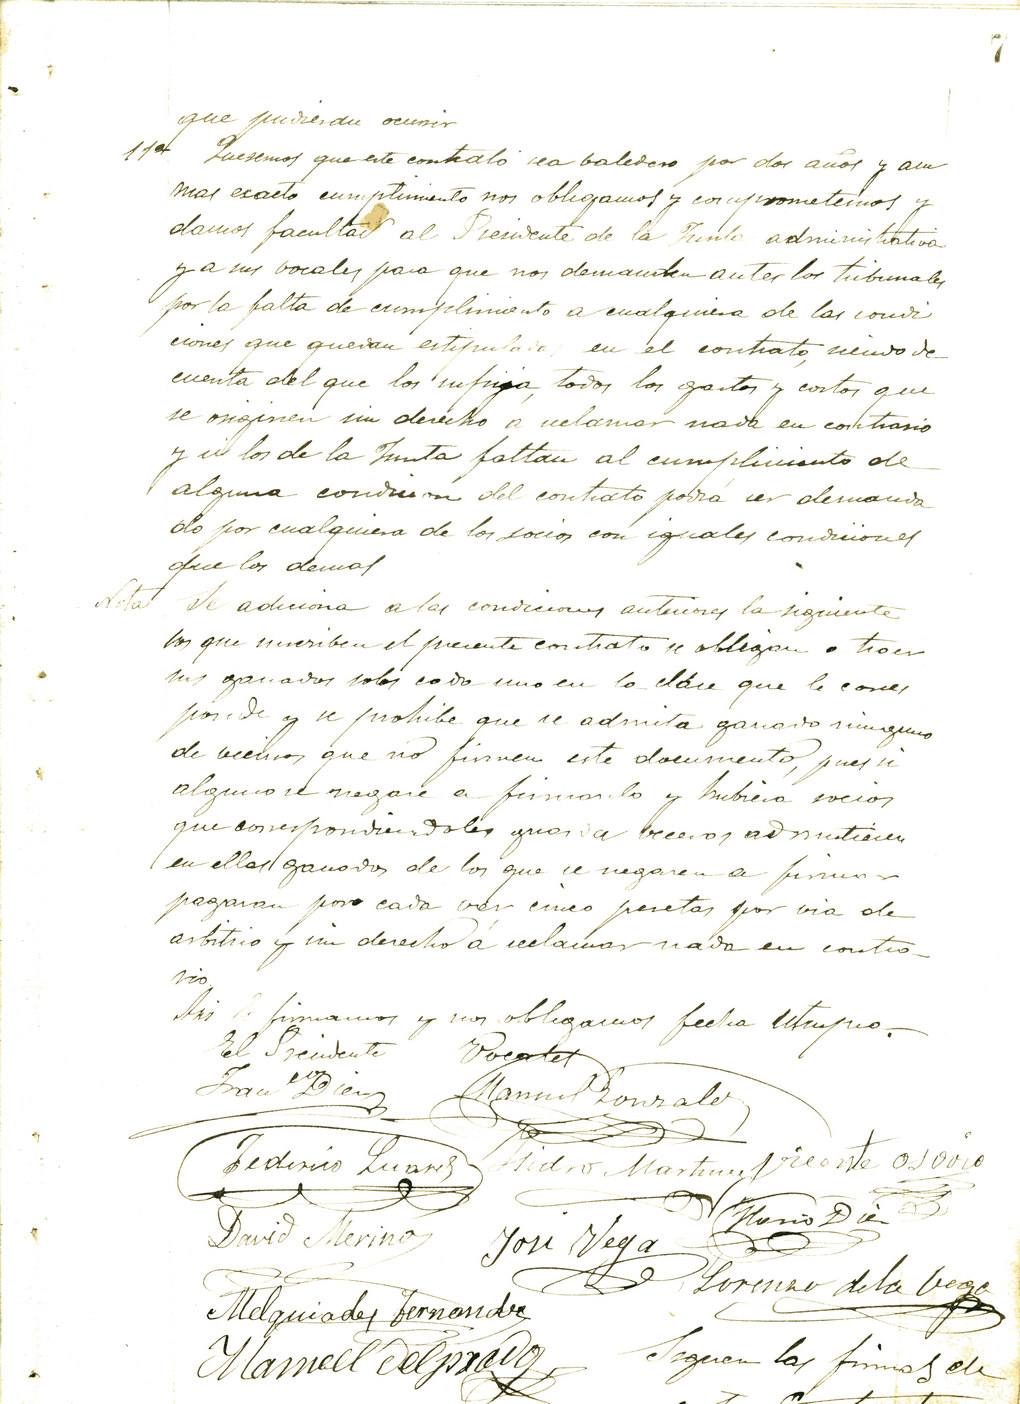 7
que pudieran ocurrir
11ª Queremos que este contrato sea baledero por dos años y a su
mas exacto cumplimiento nos obligamos y comprometemos y
damos facultad al Presidente de la Junta administrativa
y a sus vocales para que nos demanden antes los tribunales
por la falta de cumplimiento a cualquiera de las condi
ciones que quedan estipuladas en el contrato, siendo de
cuenta del que los infrija, todos los gastos y costos que
se originen sin derecho a reclamar nada en contrario
y si los de la Junta faltan al cumplimiento de
alguna condicion del contrato podrá ser demanda
do por cualquiera de los socios con iguales condiciones
que los demas
Nota Se adiciona a las condiciones anteriores la siguiente
los que suscriben el presente contrato se obligan a traer
sus ganados solos cada uno en la clase que le corres
ponde y se prohibe que se admita ganado ninguno
de vecinos que no firmen este documento, pues si
alguno se negare a firmarlo y hubiera socios
que correspondiendoles guarda veceros admitiesen
en ellas ganados de los que se negaren a firmar
pagaran por cada vez cinco pesetas por via de
arbitrio y sin derecho á reclamar nada en contra-
rio
Asi lo firmamos y nos obligamos fecha utsupra.
El Presidente Vocales
Franco Diez Manuel Gonzalez
Federico Isidro Martinez Vicente Osorio
David Merino José Vega Diez
Lorenzo de la Vega
Melquiades Fernandez
Manuel Delprado Siguen las firmas de